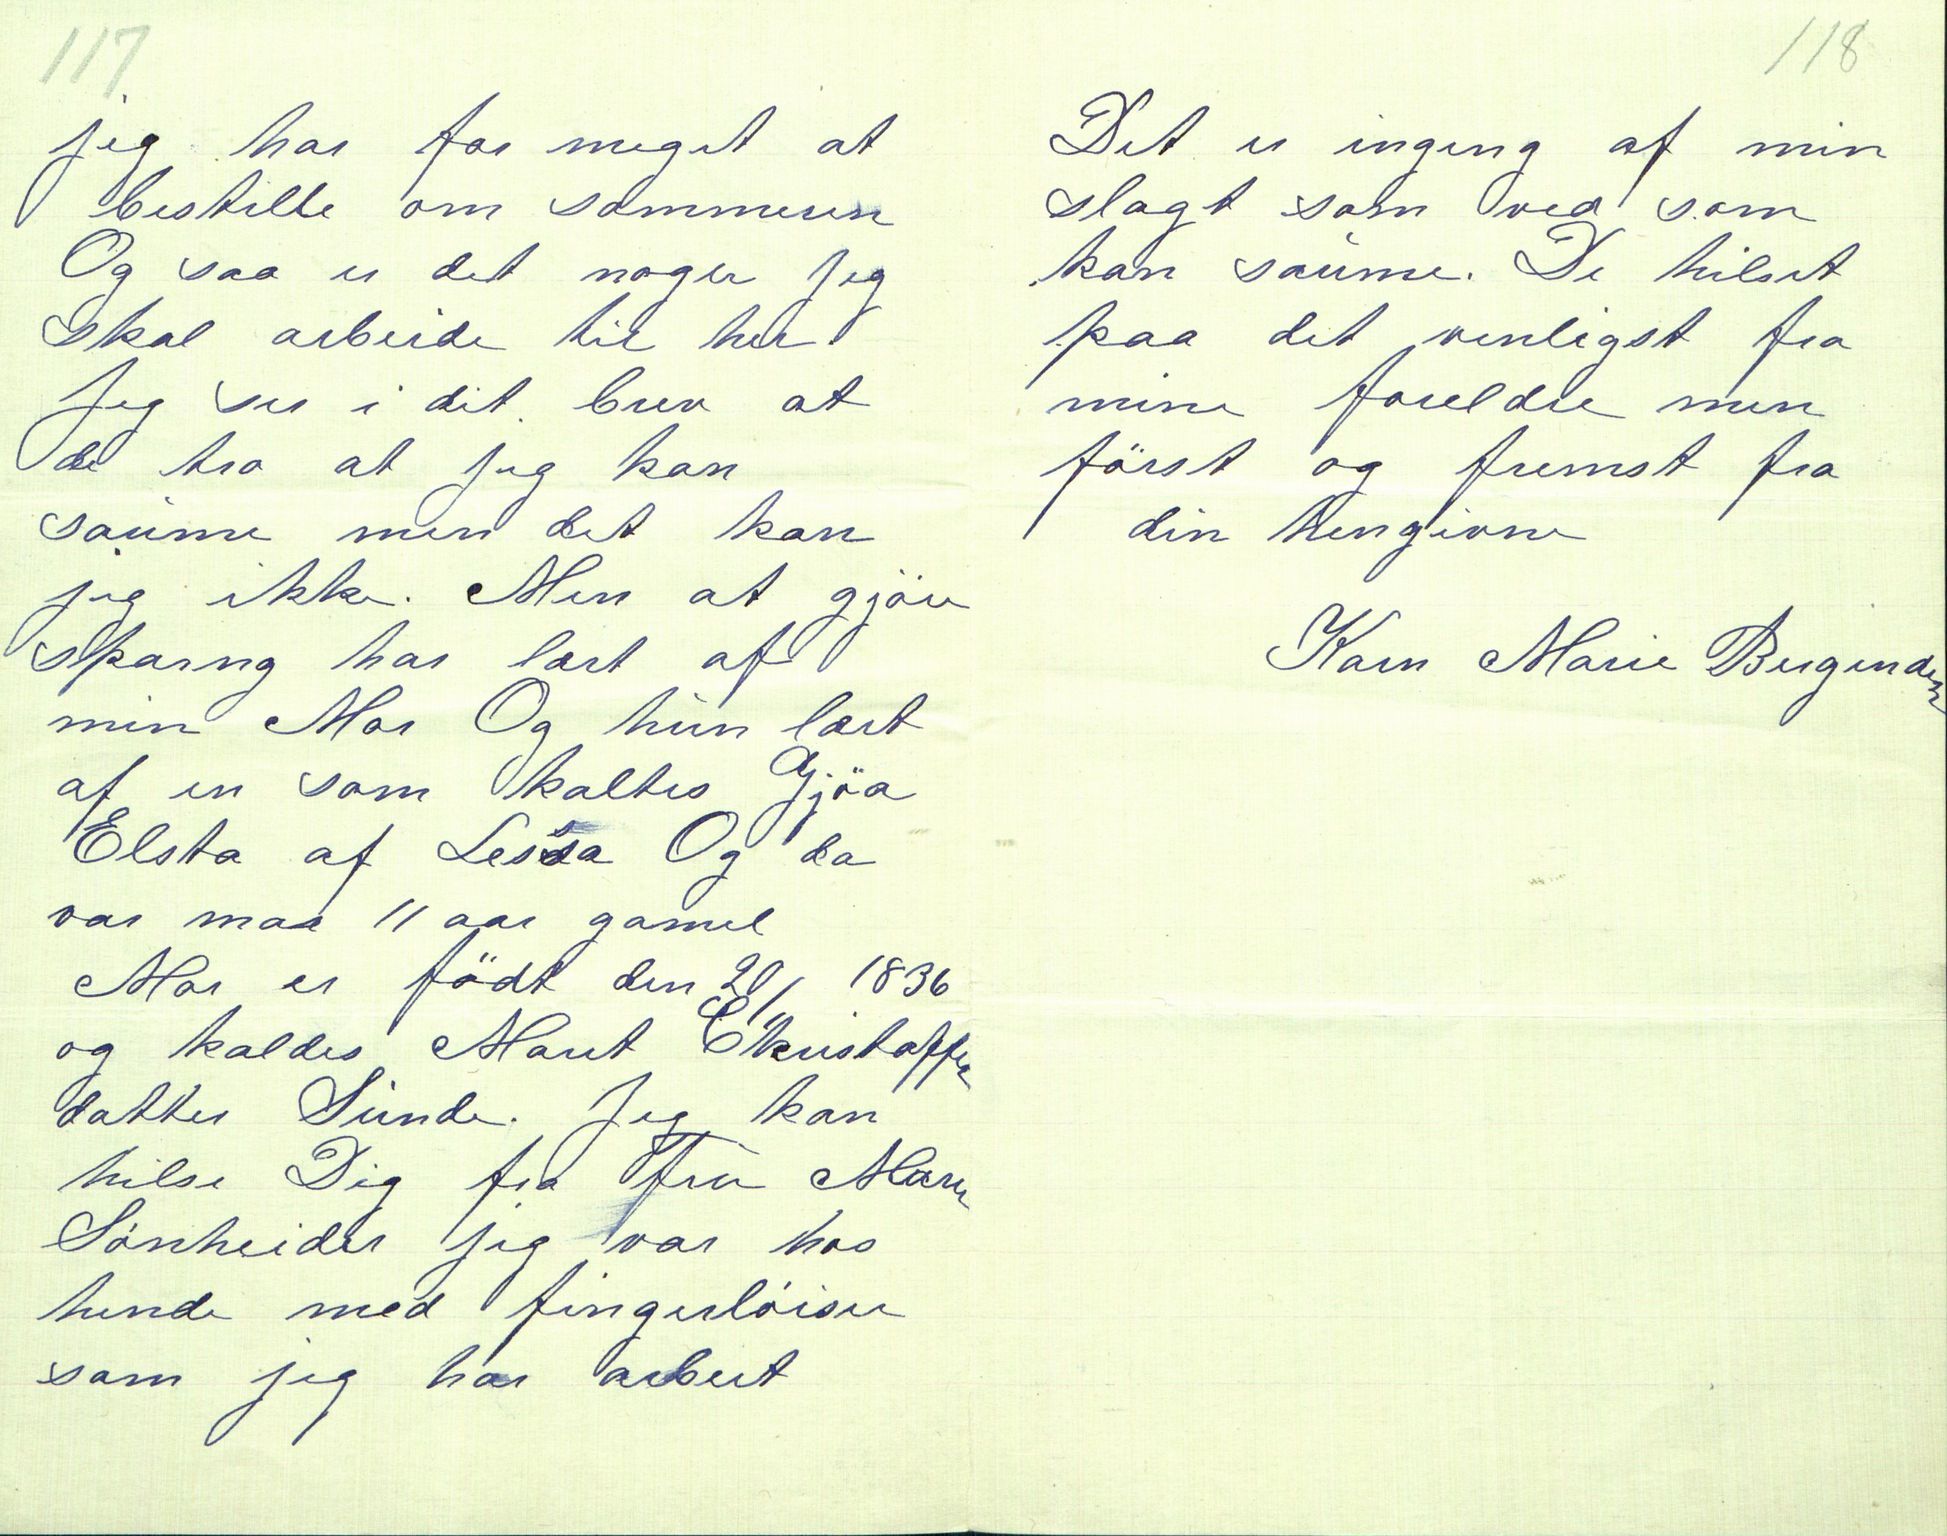 117
jeg har for meget at
bestille om sommeren
Og saa er det noger jeg
skal arbeide til her
Jeg ser i dit brev at
de tro at jeg kan
saume men det kan
jeg ikke. Men at gjöre
sparng har lært af
min Mor Og hun lært
af en som kaltes Gjöa
Elsta af Lessa Og da
var mor 11 aar gamel
Mor er födt den 20/1 1836
og kaldes Marit Ckristoffer
datter Sunde. Jeg kan
hilse Dig fra Fru Maren
Sönheider jeg var hos
hende med fingerlöiser
som jeg har arbeit
118
Det er ingeng af min
slagt som ved som
kan saume. De hilset
paa det venligst fra
mine foreldre men
först og fremst fra
din hengivne
Karn Marie Bergenden